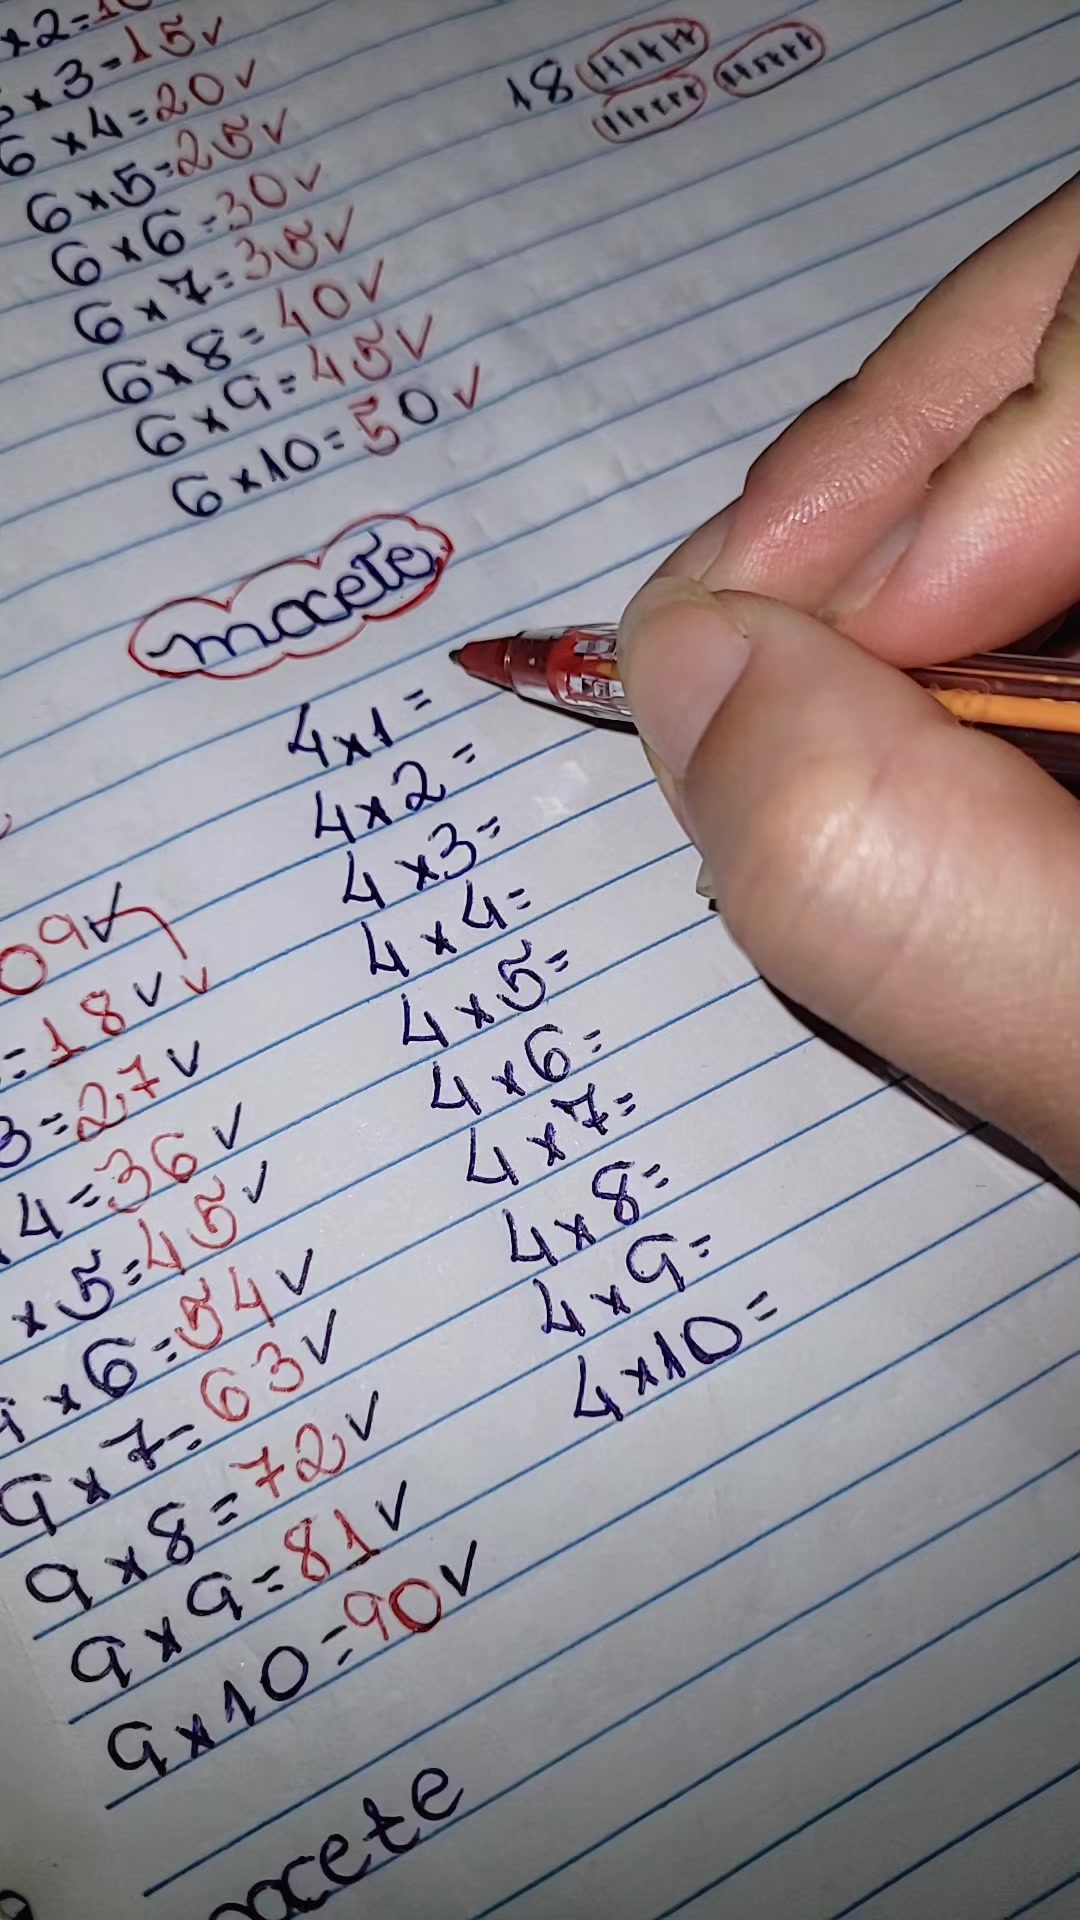 ×2=10
×3=15✓
6×4=20✓
6×5=25✓
6×6=30✓
6×7=35✓
6×8=40✓
6×9=45✓
6×10=50✓
18
macete
4×1=
4×2=
4×3=
4×4=
4×5=
4×6=
4×7=
4×8=
4×9=
4×10=
09✓
=18✓✓
3=27✓
4=36✓
×5=45✓
×6=54✓
9×7=63✓
9×8=72✓
9×9=81✓
9×10=90✓
macete